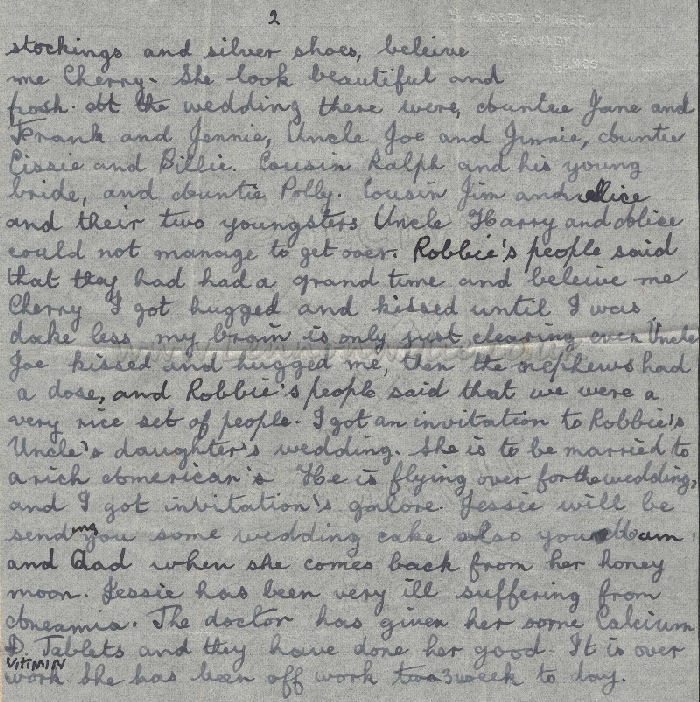 2
stockings and silver shoes, beleive
me Cherry. She look beautiful and
posh. At the wedding there were, Auntie Jane and
Frank and Jennie, Uncle Joe and Jinnie, Auntie
Cissie and Billie. Cousin Ralph and his young
bride, and Auntie Polly. Cousin Jim and Alice
and their two youngsters Uncle Harry and Alice
could not manage to get over. Robbie's people said
that they had had a grand time and beleive me
Cherry I got hugged and kissed until I was
less my brain is only just clearing even Uncle
Joe kissed and hugged me, then the nephews had
a dose, and Robbie's people said that we were a
very nice set of people. I got an invitation to Robbie's
Uncle's daughter's wedding. She is to be married to
a rich American's He is flying over for the wedding,
and I got invitation's galore. Jessie will be
sending you some wedding cake also your Mam
and Dad when she comes back from her honey
moon. Jessie has been very ill suffering from
Aneamia. The doctor has given her some Calcium
D. Tablets and they have done her good. It is over
VITIMIN
work She has been off work 3 week to day.